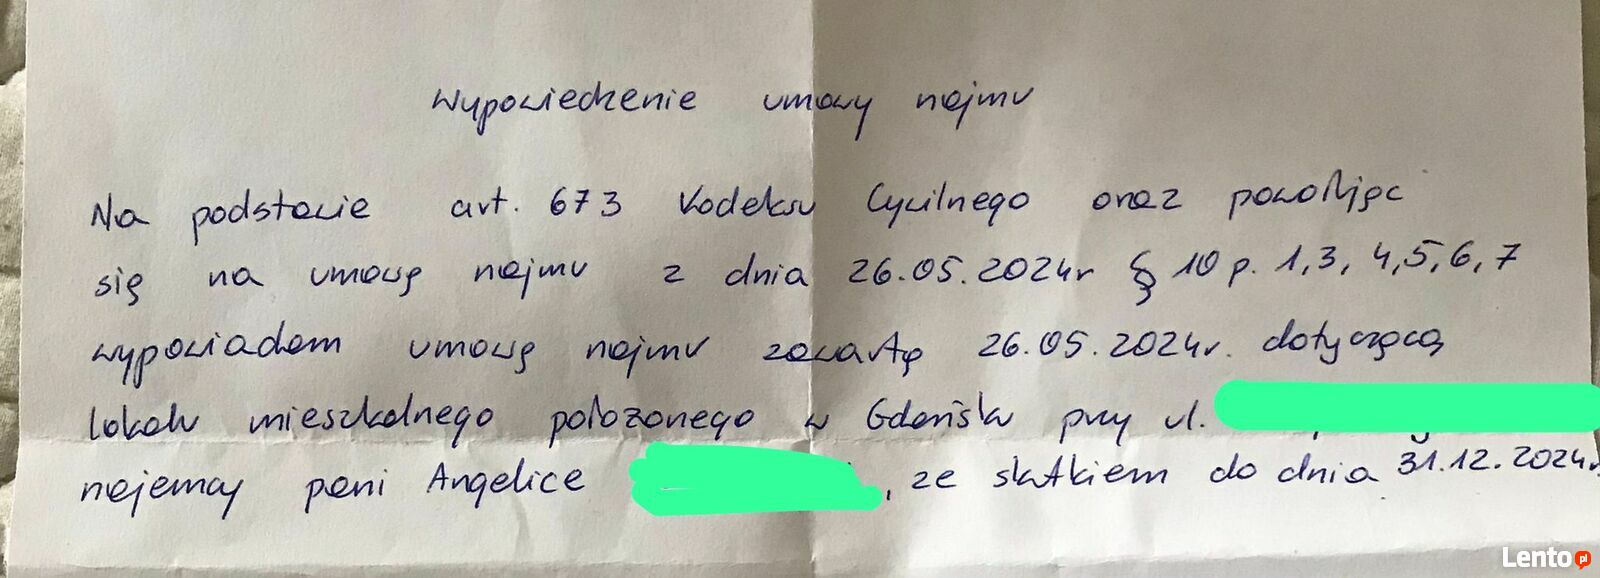 Wypowiedzenie umowy najmu
Na podstawie art. 673 Kodeksu Cywilnego oraz powołując
się na umowę najmu z dnia 26.05.2024r § 10 p. 1,3, 4,5,6,7
wypowiadam umowę najmu zawartą 26.05.2024r. dotyczącą
lokalu mieszkalnego położonego w Gdańsku przy ul.
najemcy pani Angelice , ze skutkiem do dnia 31.12.2024r
Lento.pl